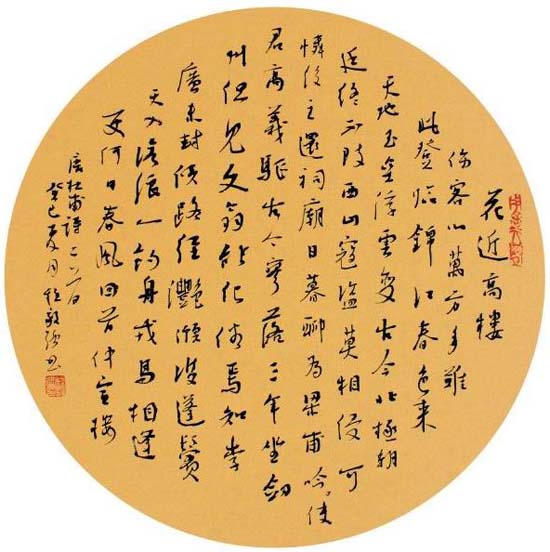 花近高樓
傷客心萬方多難
此登临錦江春色来
天地玉垒浮雲變古今北極朝
廷終不改西山寇盗莫相侵可
憐後主還祠廟日暮聊為梁甫吟使
君高義驅古今寥落三年坐劍
州但見文翁能化俗焉知李
廣未封侯路经灧澦雙蓬鬢
天入滄浪一釣舟戎馬相逢
更何日春風回首仲宣樓
唐杜甫詩二首
癸巳夏月